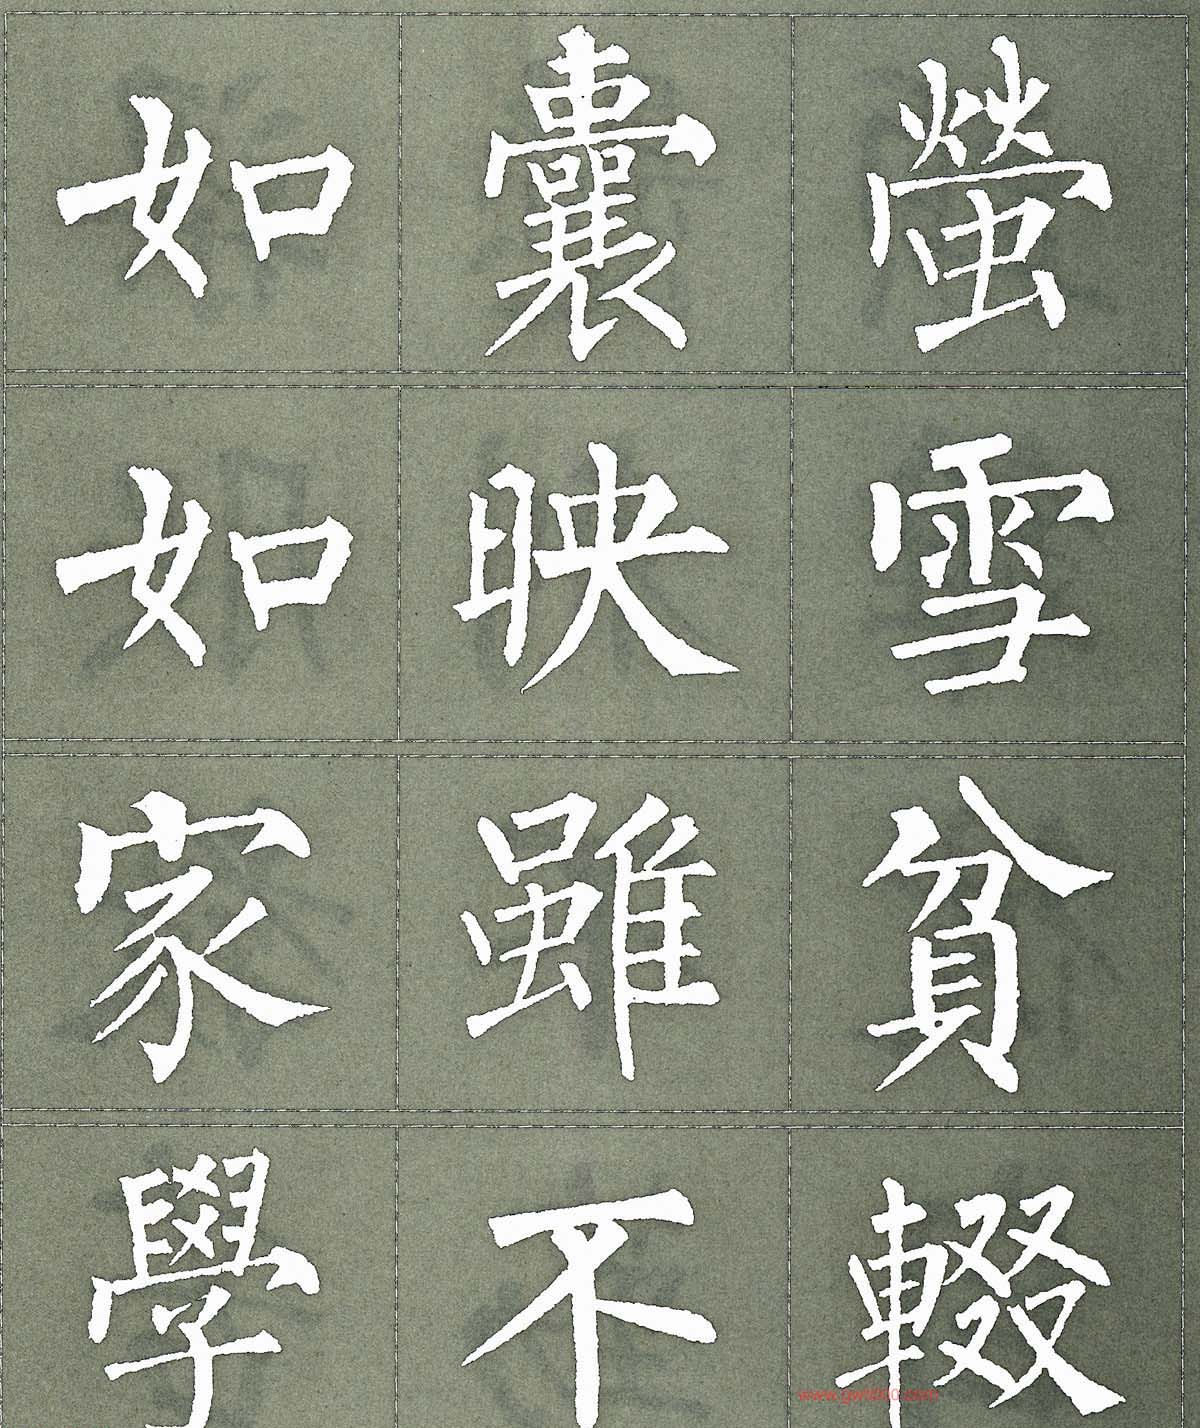 如囊螢
如映雪
家雖貧
學不輟